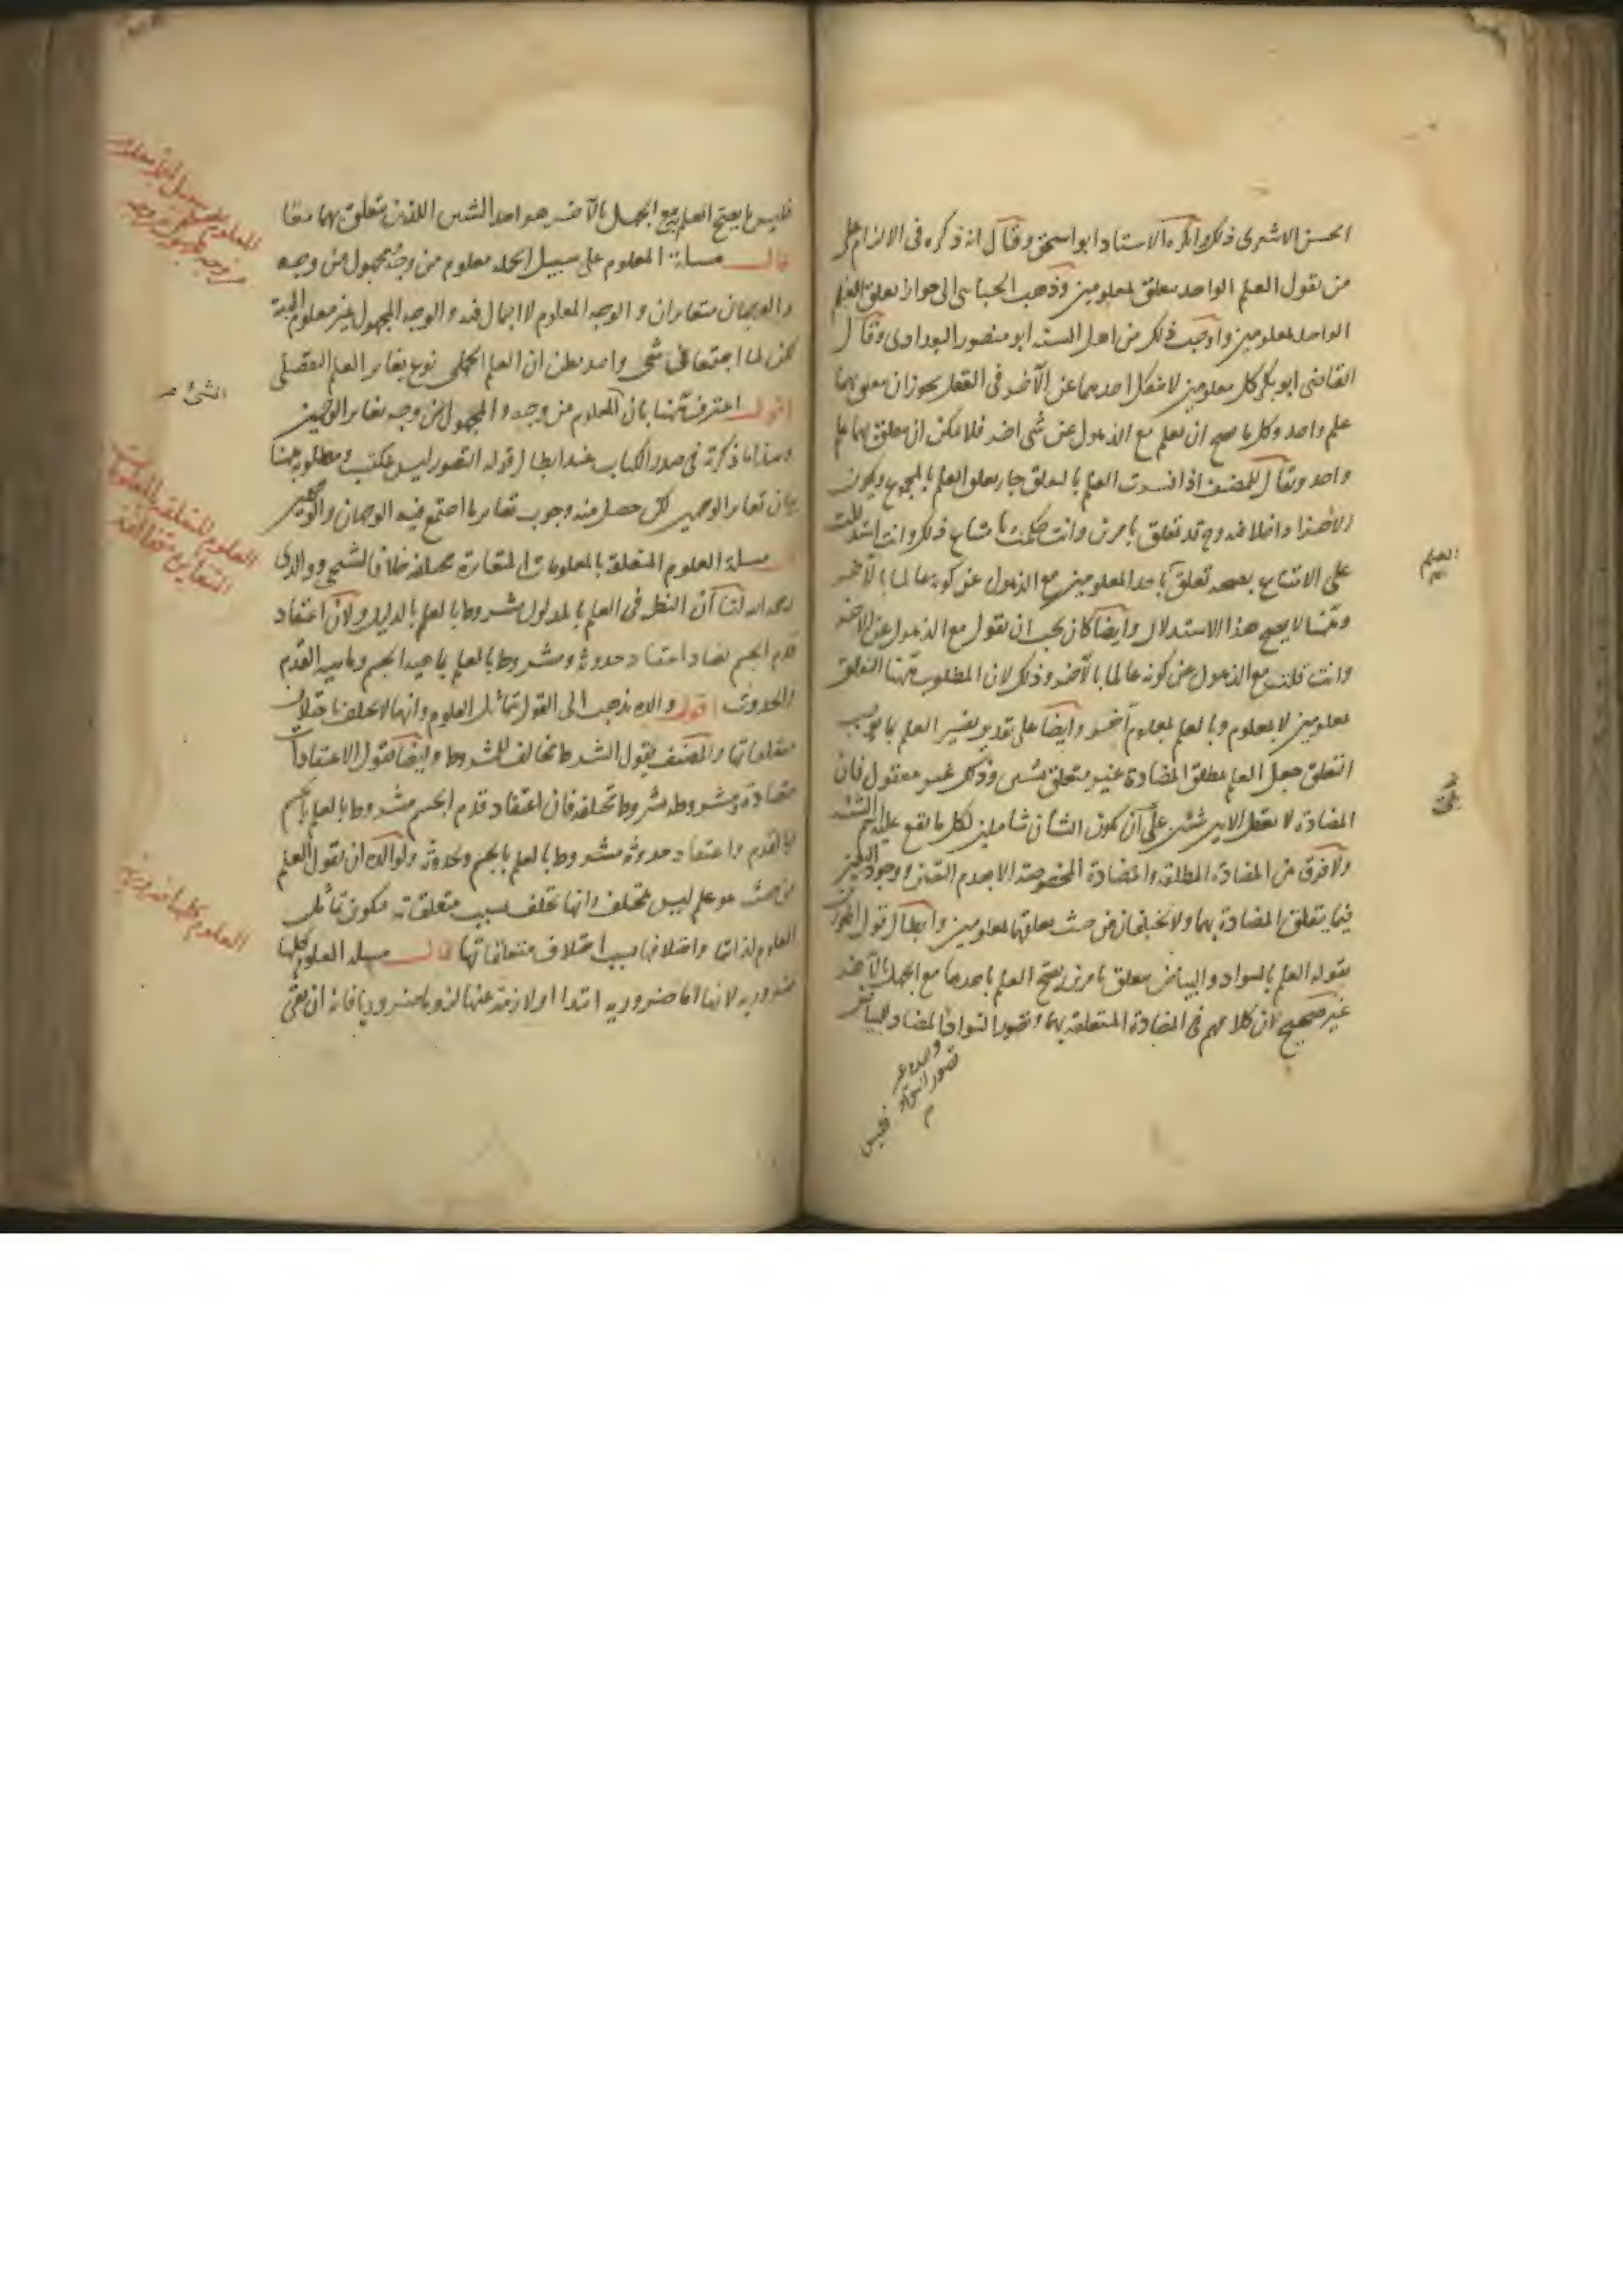 الحسن الاشعرى ذلك وانكره الاستاد ابو اسحق وقال انه ذكره فى الالزام على
من يقول العلم الواحد يتعلق بمعلومين وذهب الجبائى الى جواز تعلق العلم
الواحد بمعلومين واوجب ذلك من اهل السنه ابو منصور البغدادى وقال
القاضى ابو بكر كل معلومين لا ينفك احدهما عن الآخر فى العقل يجوز ان يتعلق بهما
علم واحد وكل ما صح ان يعلم مع الذهول عن شى اخر فلا يمكن ان يتعلق بهما علم
واحد ويقال للمصنف اذا فسرت العلم بالتعلق جاز تعلق العلم بالمجموع ويكون
الاجزا داخلا فيه وح قد تعلق بامرين وانت حكمت بامتناع ذلك وانت استدللت
على الامتناع بصحه تعلق باحد المعلومين مع الذهول عن كونه عالما بالآخر
وههنا لا يصح هذا الاستدلال وايضا كان يجب ان يقول مع الذهول عن الآخر
وانت قلت مع الذهول عن كونه عالما بالآخر وذلك لان المطلوب ههنا التعلق
بمعلومين لا بمعلوم وبالعلم بمعلوم آخر وايضا على تقدير تفسير العلم بما يوجب
التعلق جعل العلم بمطلق المضادة غير متعلق بشيئين وذلك غير معقول فان
المضادة لا تعقل الا بين شيئين على ان يكون الشيئان شاملين لكل ما يقع عليه اسم الشئ
ولا فرق بين المضادة المطلقه والمضادة المخصوصة الا بعدم التعين ووجود التعين
فيما يتعلق المضادة بهما ولا يختلفان من حيث تعلقهما بمعلومين وابطال قول المجوزين
بقوله العلم بالسواد والبياض متعلق بامرين يصح العلم باحدهما مع الجهل بالآخر
غير صحيح لان كلامهم فى المضادة المتعلقه بهما وتصور السواد المضاد للبياض
تصور السواد
فليس
العلم
فليس ما يصح العلم به مع الجهل بالآخر هو احد الشيئين اللذين يتعلق بهما معا
قال مسلة المعلوم على سبيل الجمله معلوم من وجه مجهول من وجه
والوجهان متغايران والوجه المعلوم لا اجمال فيه والوجه المجهول غير معلوم البتة
لكن لما اجتمعا فى شى واحد ظن ان العلم الجملى نوع يغاير العلم التفصيلى
اقول اعترف ههنا بان المعلوم من وجه والمجهول من وجه يغاير الوجهين
وهذا ما ذكرته فى صدر الكتاب عند ابطال قوله التصور ليس بمكتسب ومطلوبه ههنا
بيان تغاير الوجهين لكن حصل منه وجوب تغاير ما اجتمع فيه الوجهان والوجهين
مسلة العلوم المتعلقة بالمعلومات المتغايرة مختلفه خلافا لشيخى ووالدى
رحمه الله لنا ان النظر فى العلم بالمدلول مشروط بالعلم بالدليل ولان اعتقاد
قدم الجسم يضاد اعتقاد حدوثه ومشروط بالعلم بماهية الجسم وماهية القدم
والحدوث اقول والده يذهب الى القول بتماثل العلوم وانها لا تختلف باختلاف
متعلقاتها والمصنف يقول الشرط مخالف للمشروط وايضا يقول الاعتقادات
متضادة ومشروطه بشروط مختلفه فان اعتقاد قدم الجسم مشروط بالعلم بالجسم
وبالقدم واعتقاد حدوثه مشروط بالعلم بالجسم وبحدوثه ولوالده ان يقول العلم
من حيث هو علم ليس بمختلف وانها تختلف بسبب متعلقاته فيكون تماثل
العلوم لذاتها واختلافها بسبب اختلاف متعلقاتها قال مسله العلوم كلها
ضروريه لانها اما ضروريه ابتدا او لازمة عنها لزوما ضروريا فانه ان بقى
الشئ
العلوم المتعلقة بالمعلومات
المتغايرة مختلفة
العلوم كلها ضرورية